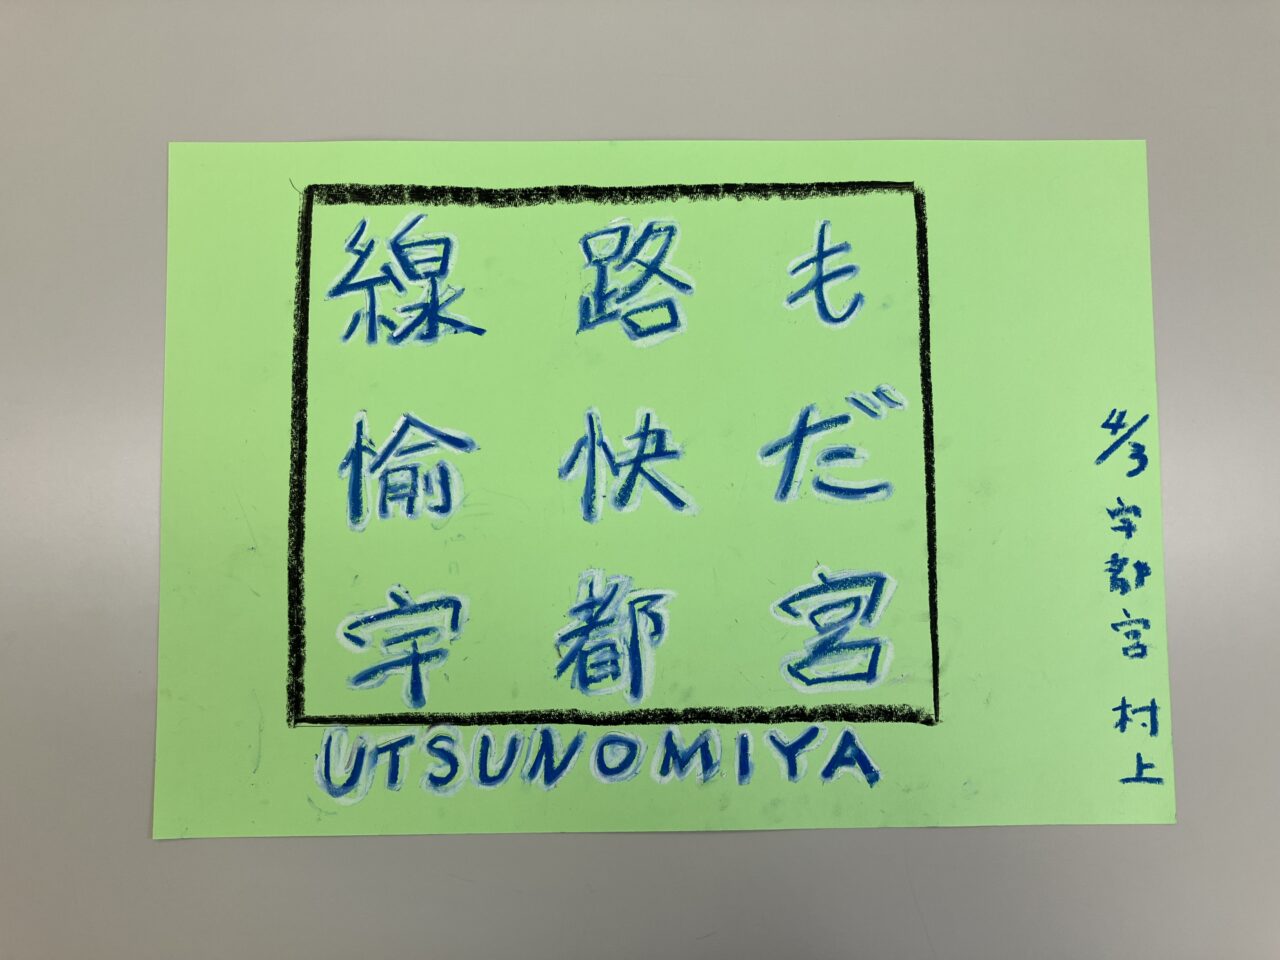 線路も
愉快だ
宇都宮
UTSUNOMIYA
4/3 宇都宮 村上